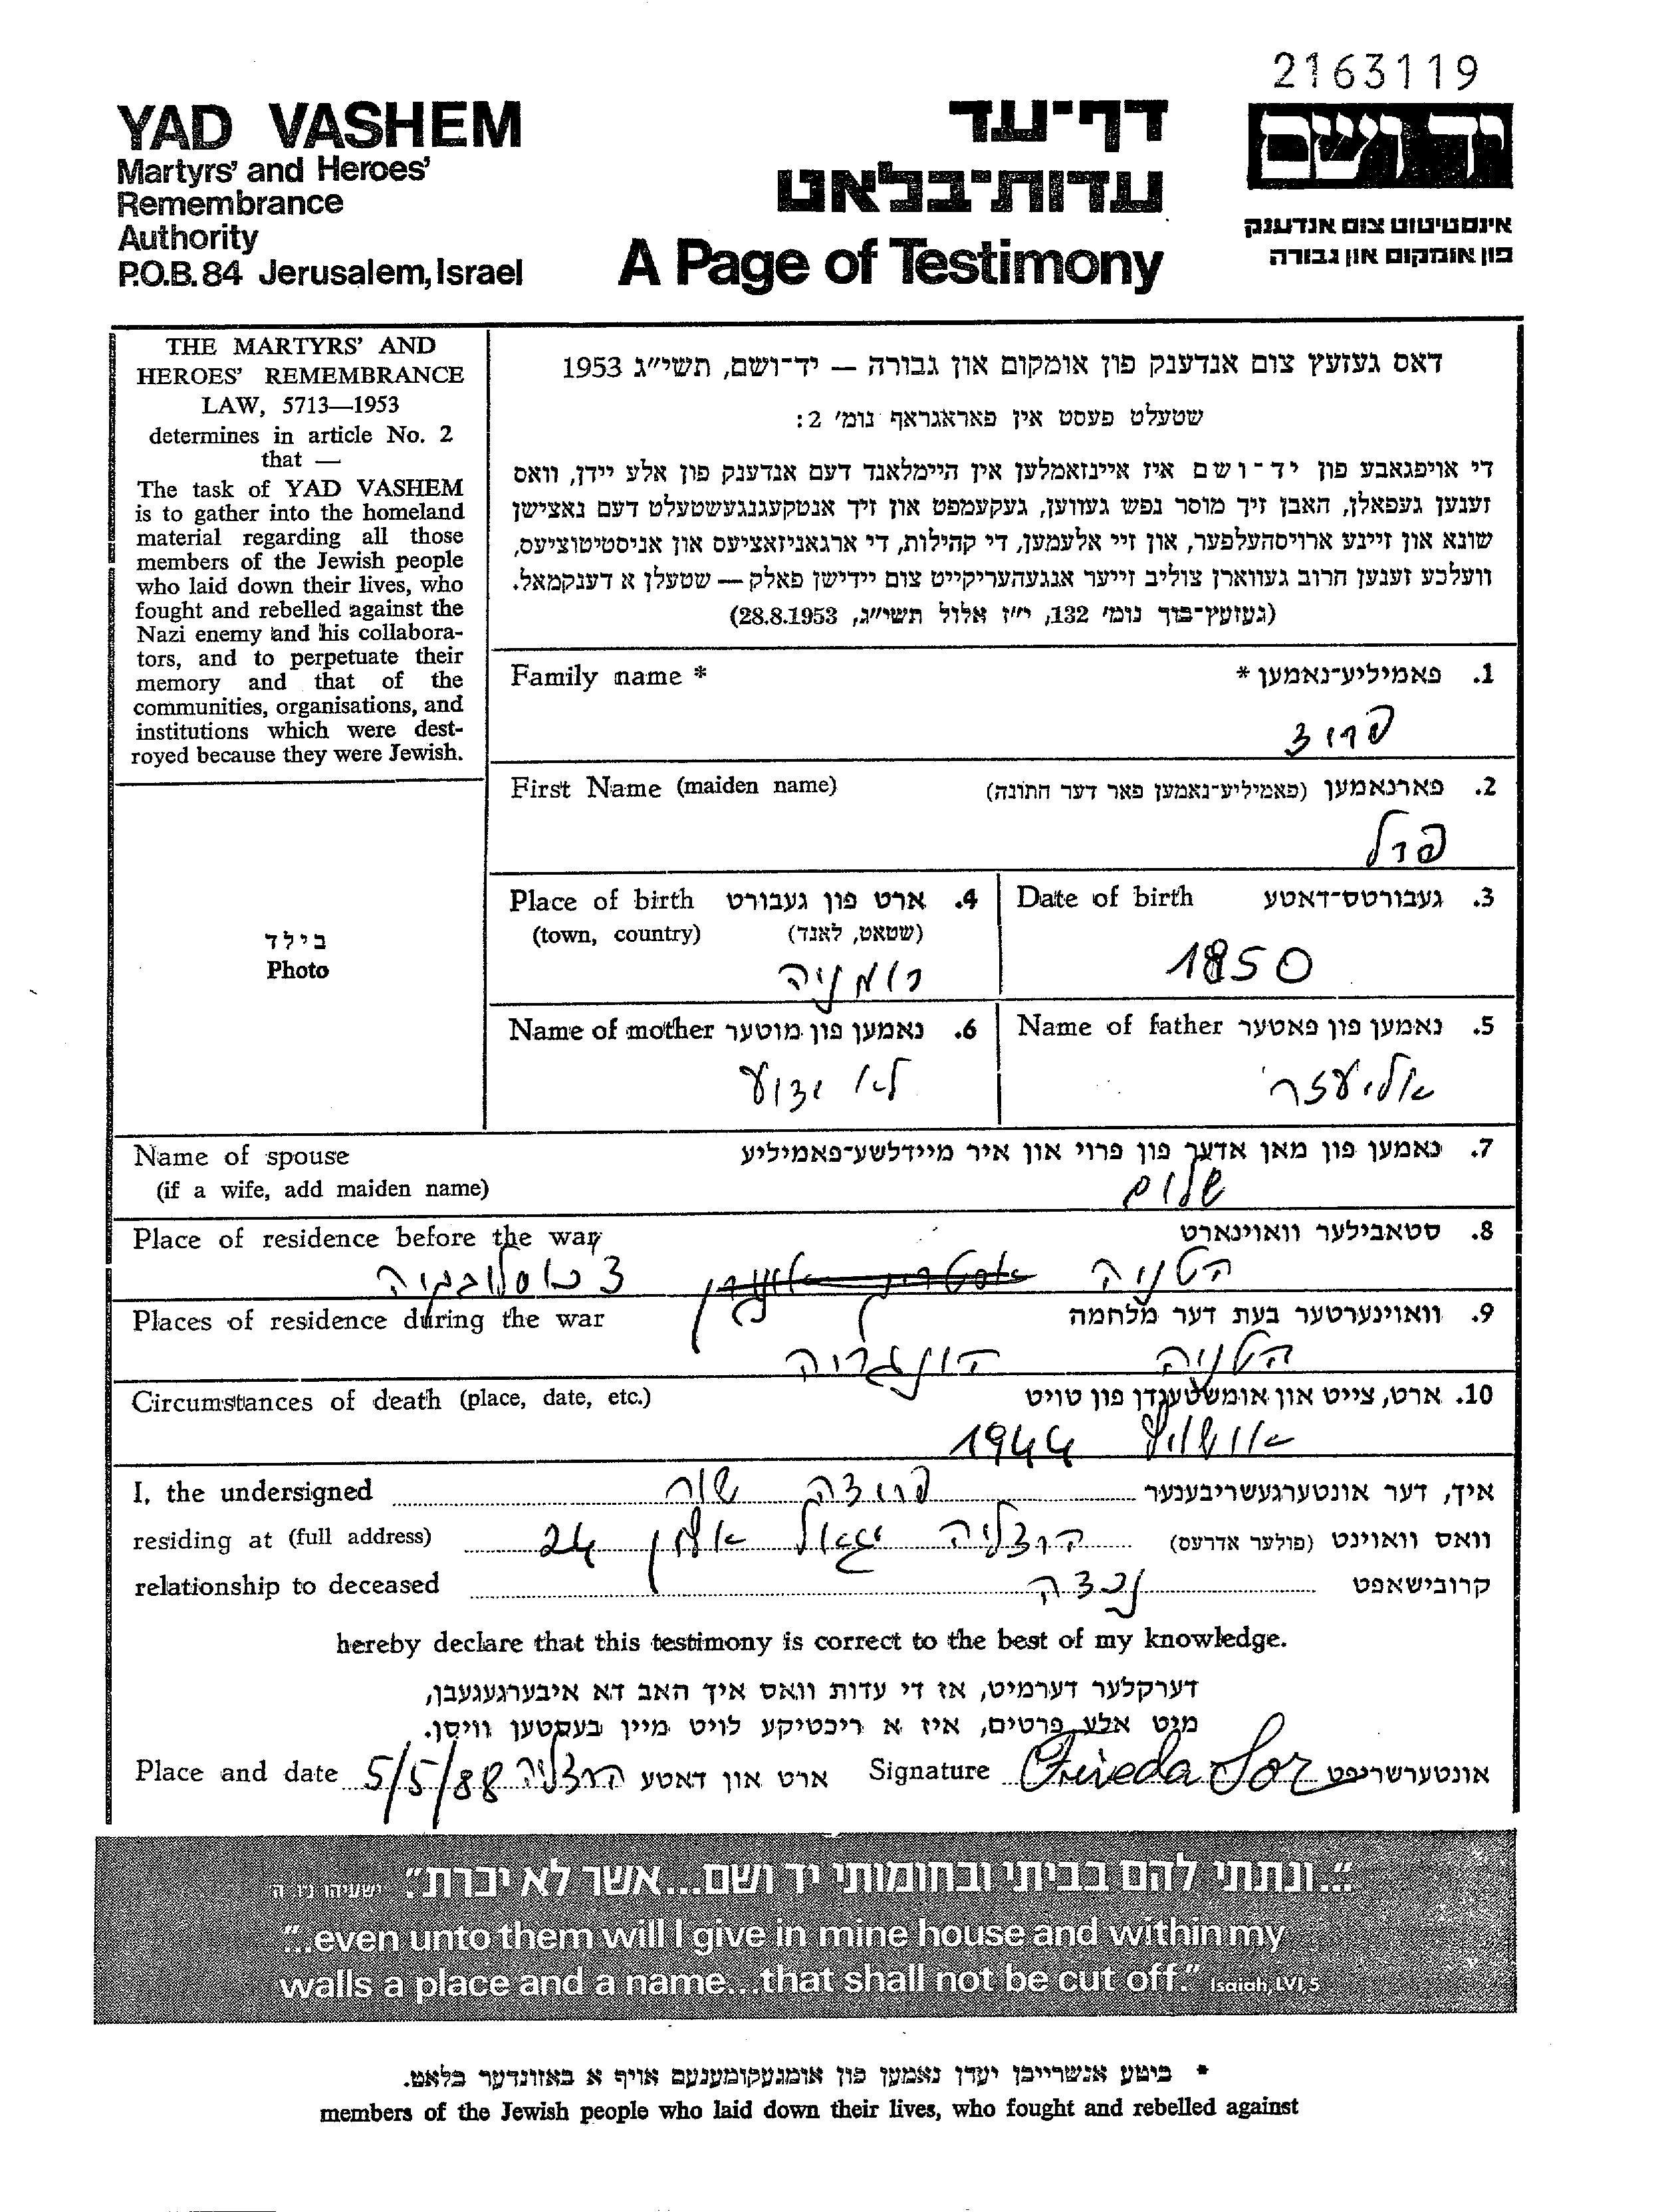 2163119
YAD VASHEM
Martyrs' and Heroes'
Remembrance
Authority
P.O.B. 84 Jerusalem, Israel
דף-עד
עדות-בלאט
A Page of Testimony
יד ושם
אינסטיטוט צום אנדענק
פון אומקום און גבורה
THE MARTYRS' AND
HEROES' REMEMBRANCE
LAW, 5713—1953
determines in article No. 2
that —
The task of YAD VASHEM
is to gather into the homeland
material regarding all those
members of the Jewish people
who laid down their lives, who
fought and rebelled against the
Nazi enemy and his collabora-
tors, and to perpetuate their
memory and that of the
communities, organisations, and
institutions which were dest-
royed because they were Jewish.
בילד
Photo
דאס געזעץ צום אנדענק פון אומקום און גבורה — יד-ושם, תשי"ג 1953
שטעלט פעסט אין פאראגראף נומ' 2:
די אויפגאבע פון יד-ושם איז איינזאמלען אין היימלאנד דעם אנדענק פון אלע יידן, וואס
זענען געפאלן, האבן זיך מוסר נפש געווען, געקעמפט און זיך אנטקעגנגעשטעלט דעם נאצישן
שונא און זיינע ארויסהעלפער, און זיי אלעמען, די קהילות, די ארגאניזאציעס און אניסטיטוציעס,
וועלכע זענען חרוב געווארן צוליב זייער אנגעהעריקייט צום יידישן פאלק — שטעלן א דענקמאל.
(געזעץ-בוך נומ' 132, י"ז אלול תשי"ג, 28.8.1953)
Family name * פאמיליע-נאמען * .1
פרוצ
First Name (maiden name) פארנאמען (פאמיליע-נאמען פאר דער חתונה) .2
פרל
Date of birth געבורטס-דאטע .3
1850
Place of birth ארט פון געבורט .4
(town, country) (שטאט, לאנד)
רומניה
Name of father נאמען פון פאטער .5
אליעזר
Name of mother נאמען פון מוטער .6
לא ידוע
Name of spouse נאמען פון מאן אדער פון פרוי און איר מיידלשע-פאמיליע .7
(if a wife, add maiden name)
שלום
Place of residence before the war סטאבילער וואוינארט .8
צ'כוסלובקיה
Places of residence during the war וואוינערטער בעת דער מלחמה .9
הונגריה
Circumstances of death (place, date, etc.) ארט, צייט און אומשטענדן פון טויט .10
אושוויץ 1944
I, the undersigned פרוצה שור איך, דער אונטערגעשריבענער
residing at (full address) הרצליה יגאל אלון 24 וואס וואוינט (פולער אדרעס)
relationship to deceased נכדה קרובישאפט
hereby declare that this testimony is correct to the best of my knowledge.
דערקלער דערמיט, אז די עדות וואס איך האב דא איבערגעגעבן,
מיט אלע פרטים, איז א ריכטיקע לויט מיין בעסטען וויסן.
Place and date 5/5/88 הרצליה ארט און דאטע Signature Frieda Sor אונטערשריפט
"...ונתתי להם בביתי ובחומותי יד ושם...אשר לא יכרת." ישעיהו נו ה
"...even unto them will I give in mine house and within my
walls a place and a name...that shall not be cut off." Isaiah, LVI, 5
* ביטע אנשרייבן יעדן נאמען פון אומגעקומענעם אויף א באזונדער בלאט.
members of the Jewish people who laid down their lives, who fought and rebelled against